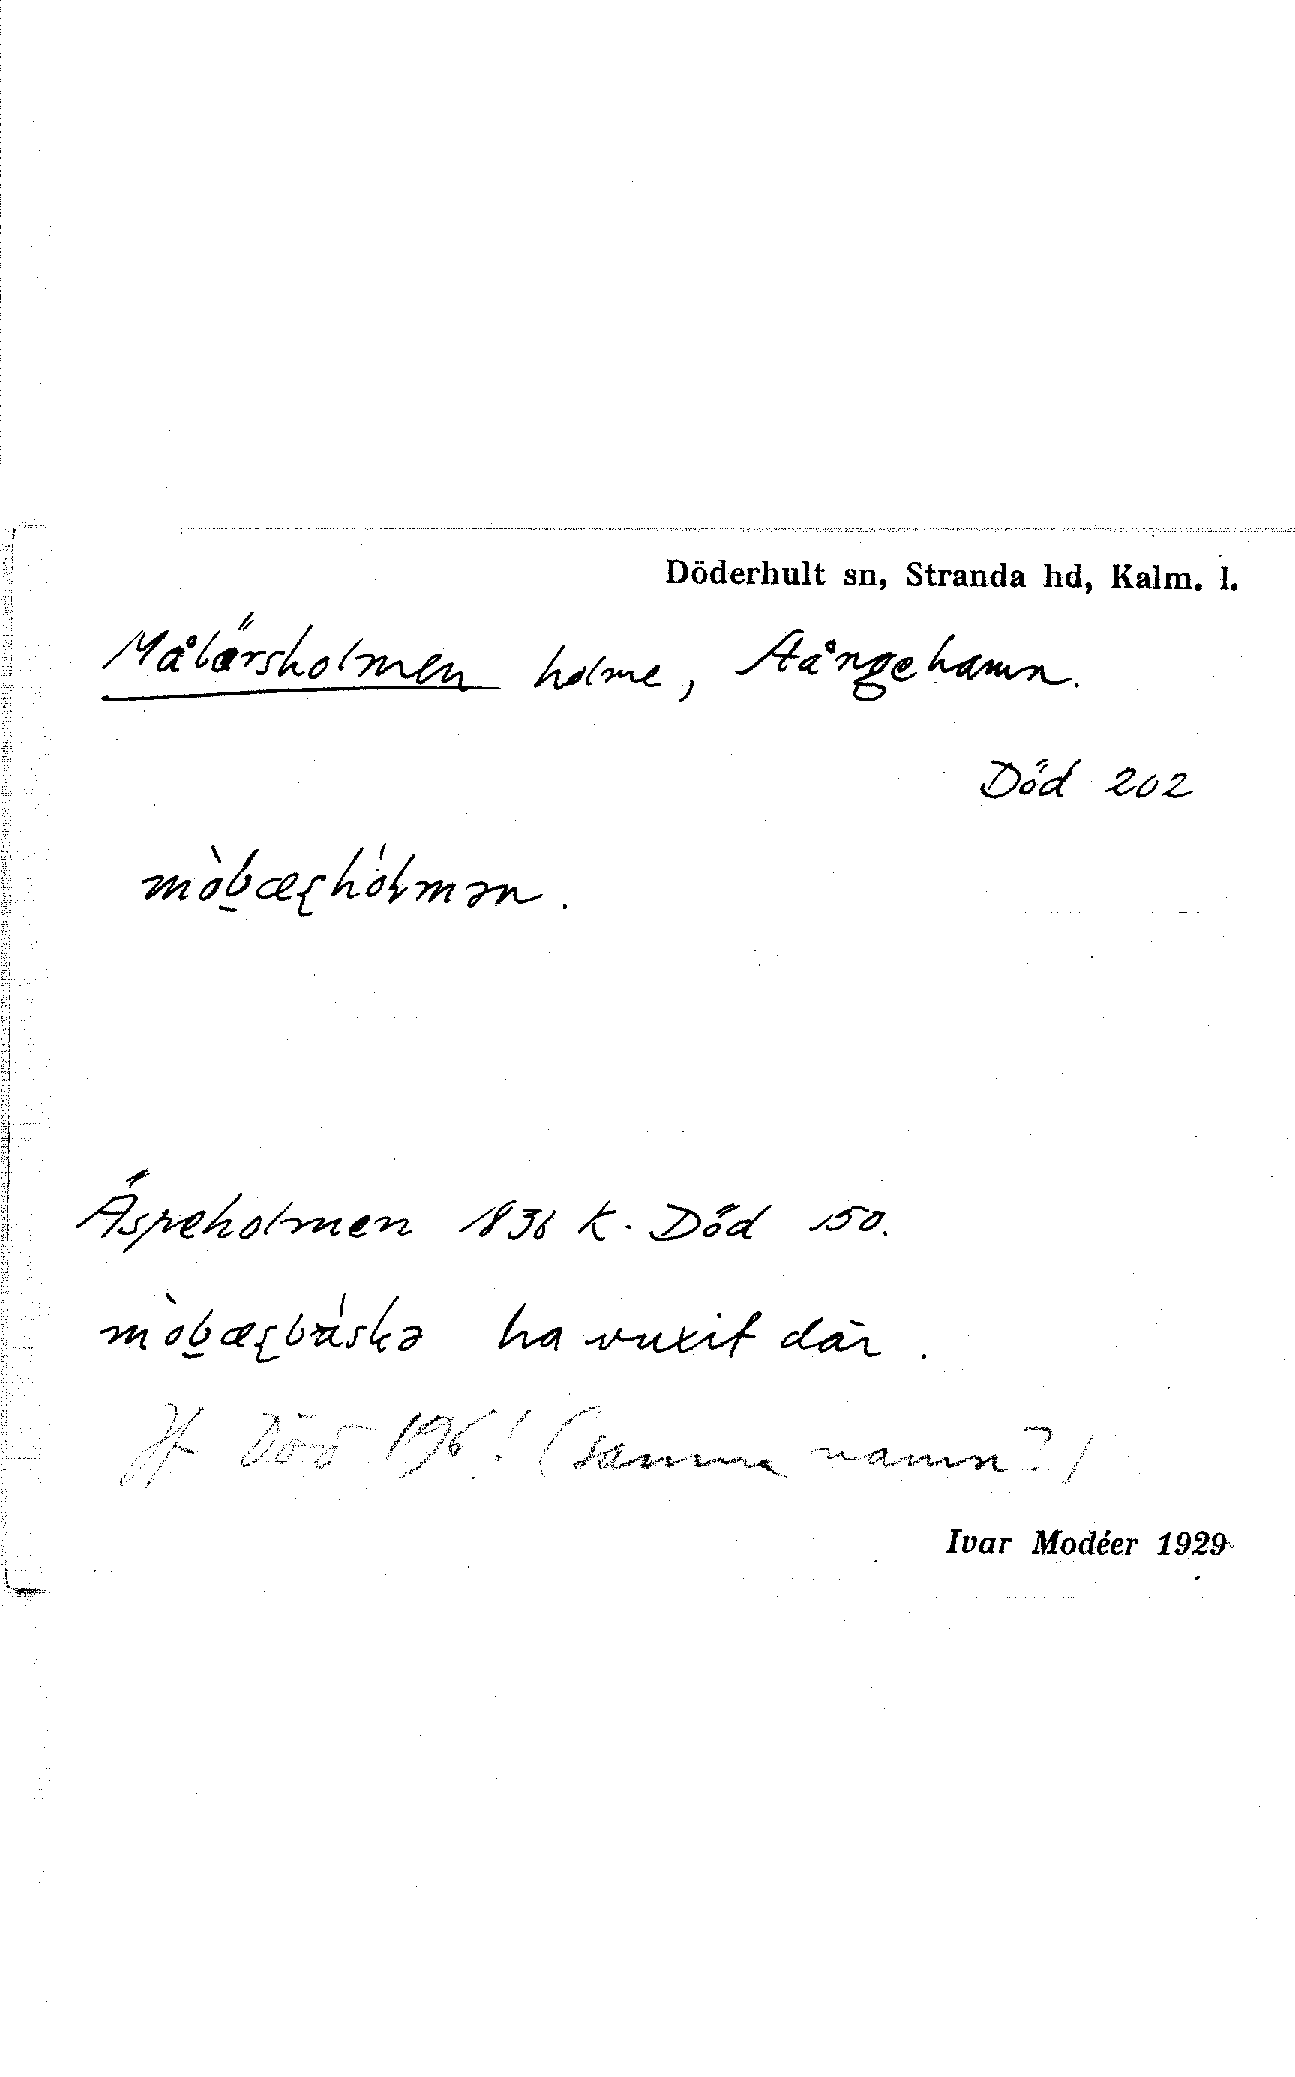 Döderhult sn, Stranda hd, Kalm. l.
Målärsholmen holme,
Död 202
Äspeholmen 1836 K. Död 150.
ha vuxit där.
Jf Död 196! (samma namn?)
Ivar Modéer 1929